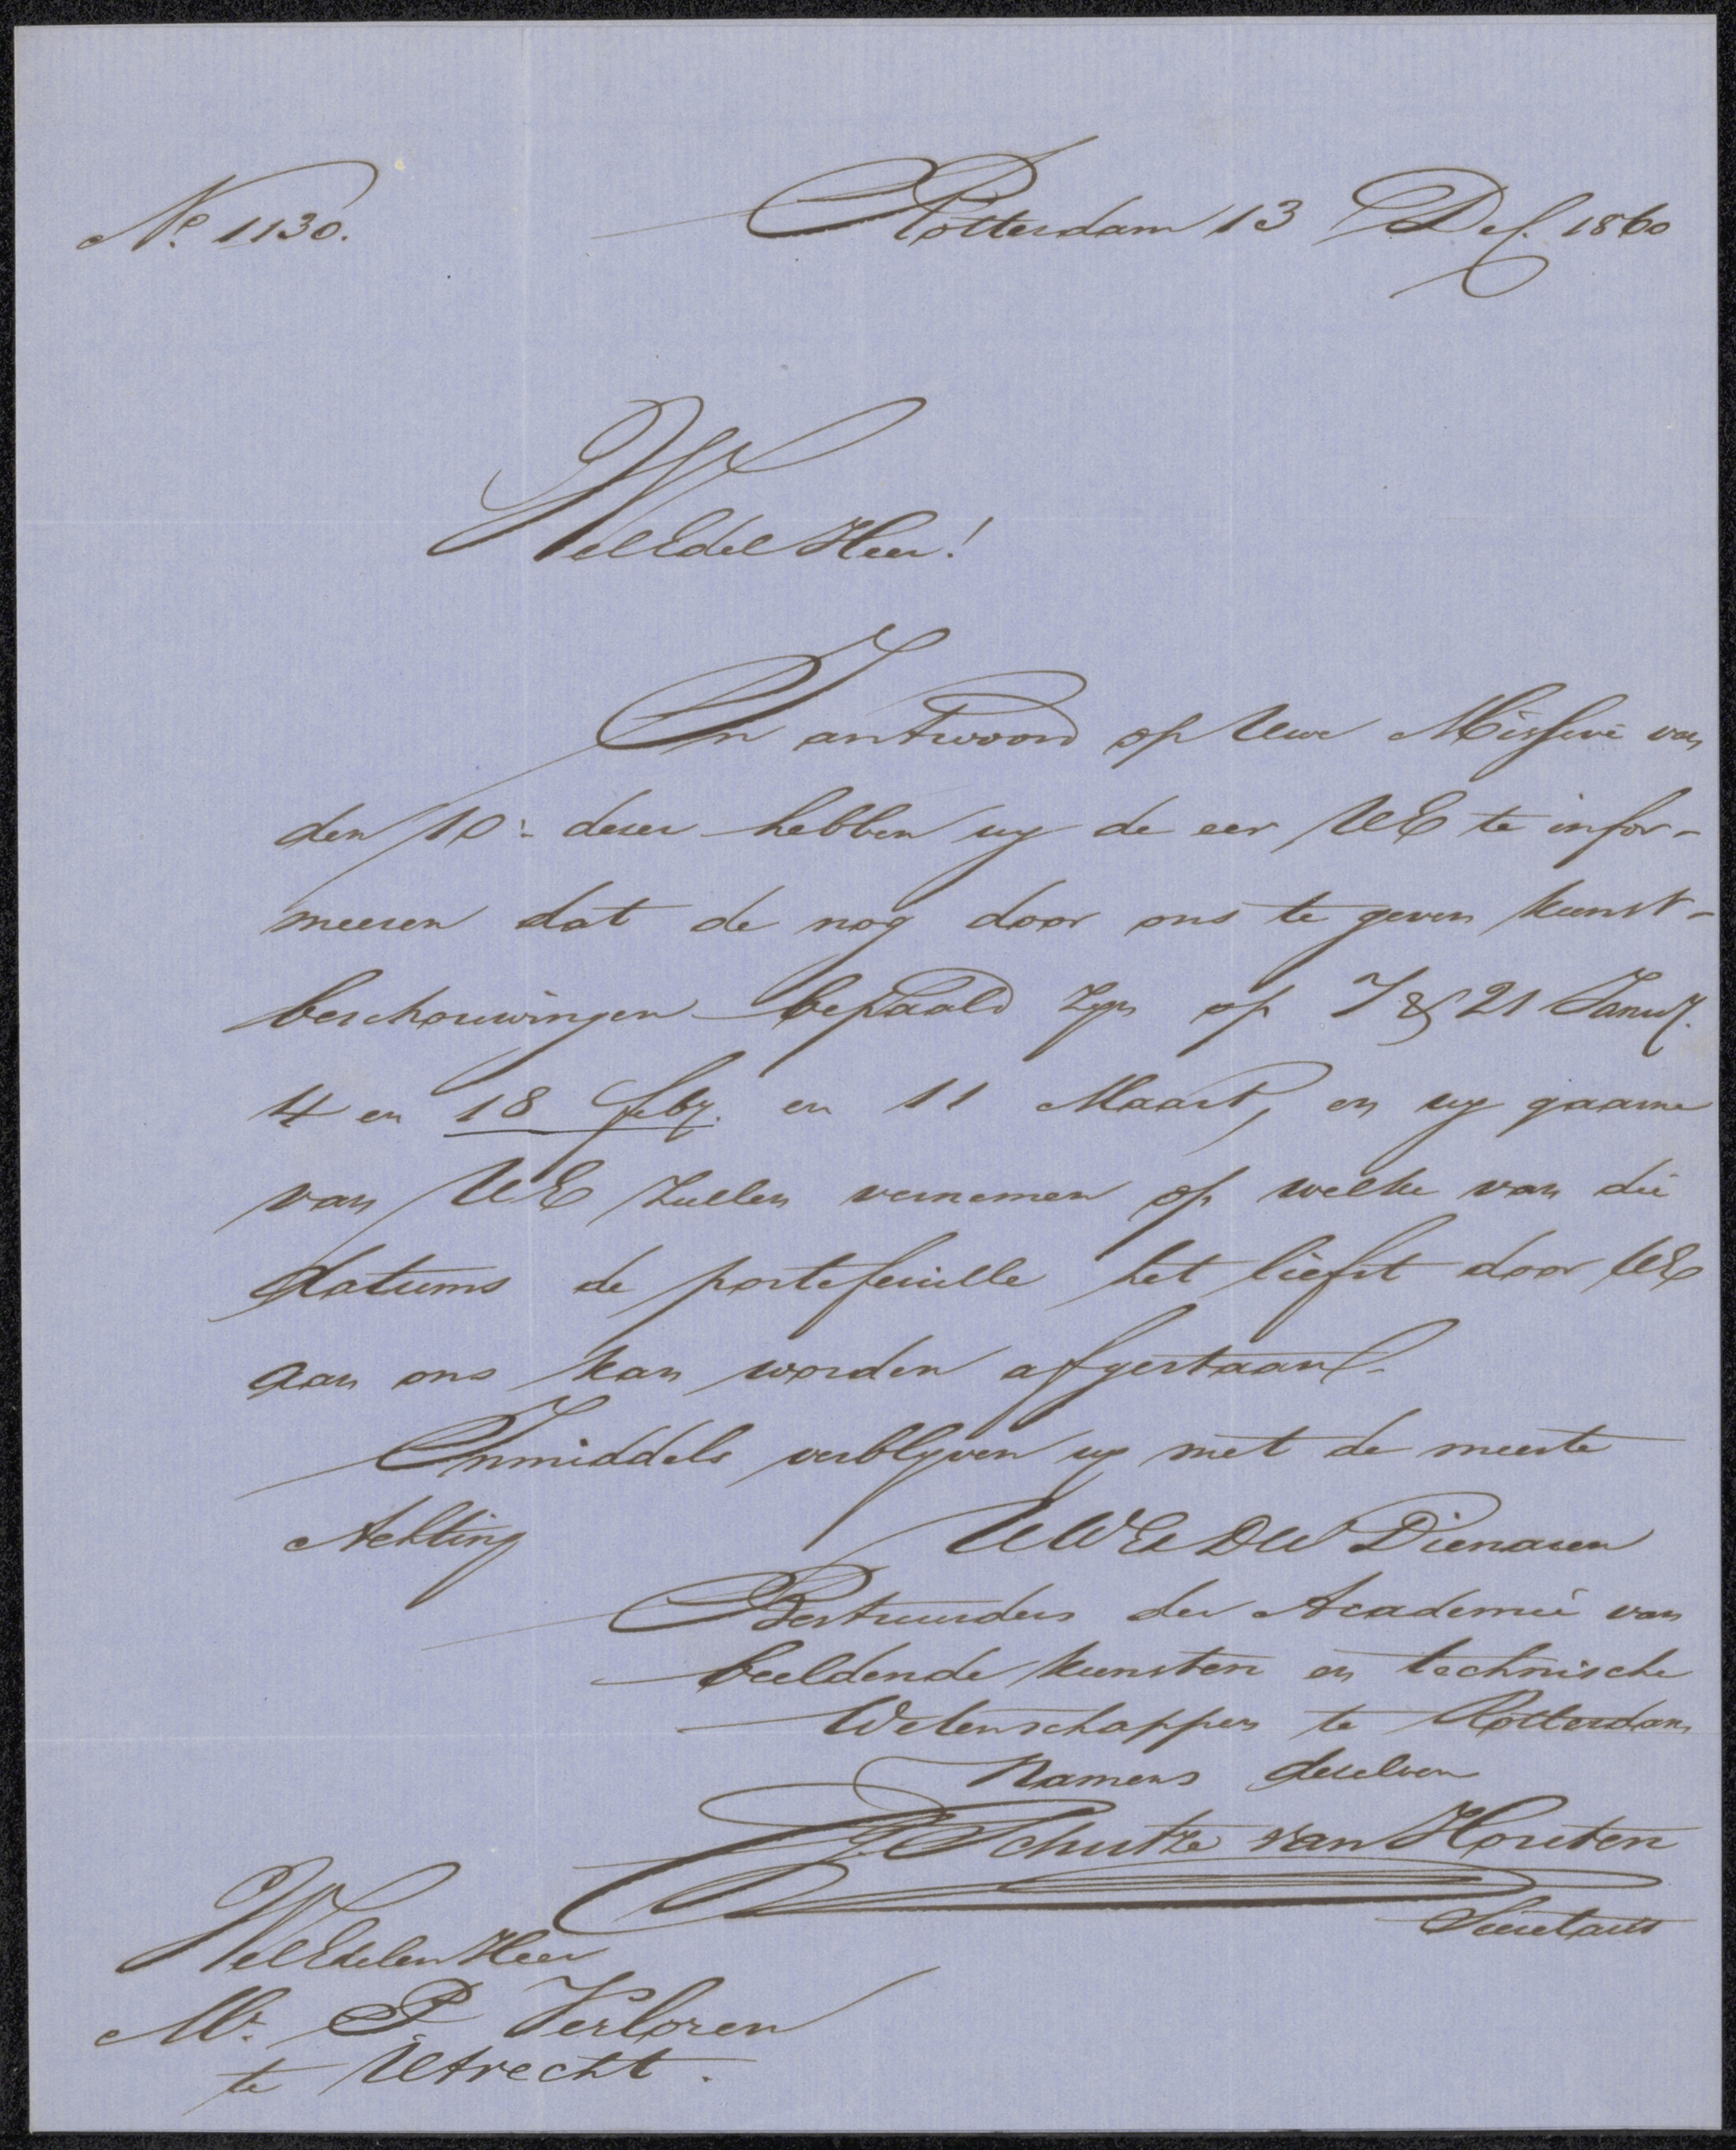 No. 1130.
Rotterdam 13 Dec. 1860
WelEdel Heer!
In antwoord op Uwe Missive van
den 10e dezer hebben wy de eer UE te infor-
meeren dat de nog door ons te geven kunst-
beschouwingen bepaald zyn op 7 & 21 Januy.
4 en 18 feby. en 11 Maart, en wy gaarne
van UE zullen vernemen op welke van die
datums de portefeuille het liefst door UE
aan ons kan worden afgestaan.
Inmiddels verblyven wy met de meeste
Achting
UWEDW Dienaren
Bestuurders der Academie van
beeldende kunsten en technische
Wetenschappen te Rotterdam
Namens dezelven
Schutze van Houten
Secretaris
WelEdelen Heer
Mr. P. Verloren
te Utrecht.